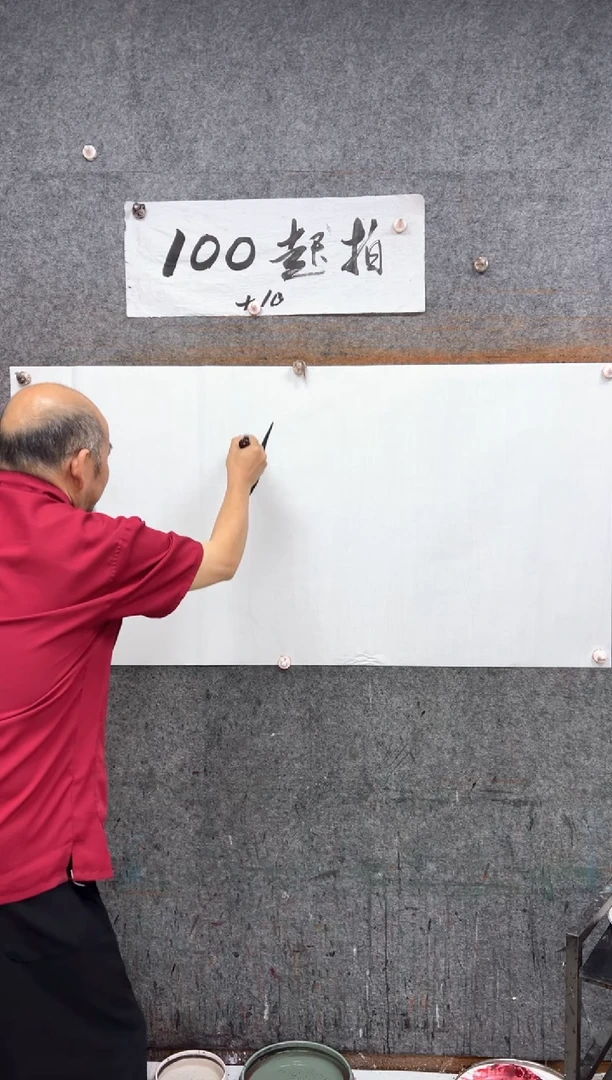 100起拍
+10